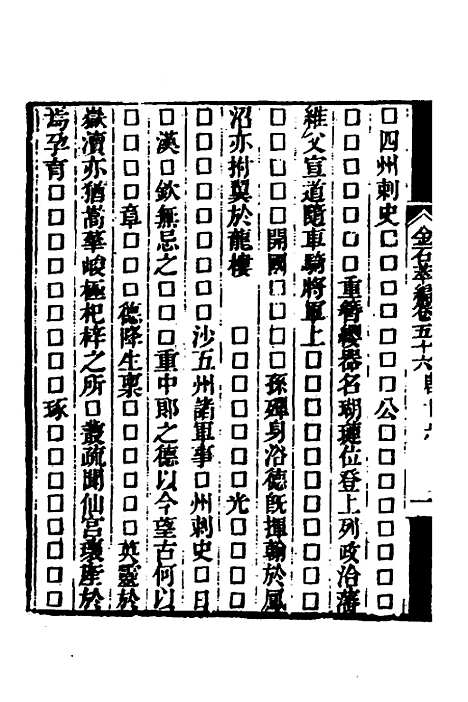 金石萃編卷五十六 唐十六 一
□四州刺史□□□□□□□公□□□□□□□□
□□□□□□□重簪纓器名瑚璉位登上列政治藩
維父宣道隨車騎將軍上□□□□□□□□□□
□□□□□開國□□□□孫殫身浴德既揮翰於鳳
沼亦拊翼於龍樓 □□□□□□□光□□□□
□□□□□□□□□沙五州諸軍事□州刺史□日
□漢□欽無忌之□□□重中郎之德以今望古何以
□□□□章□□□德降生稟□□□□□□英靈於
嶽瀆亦猶嵩華峻極杞梓之所□叢疏聞仙宮瓌産於
焉孕育□□□□□□□□□琢□□□□□□□□